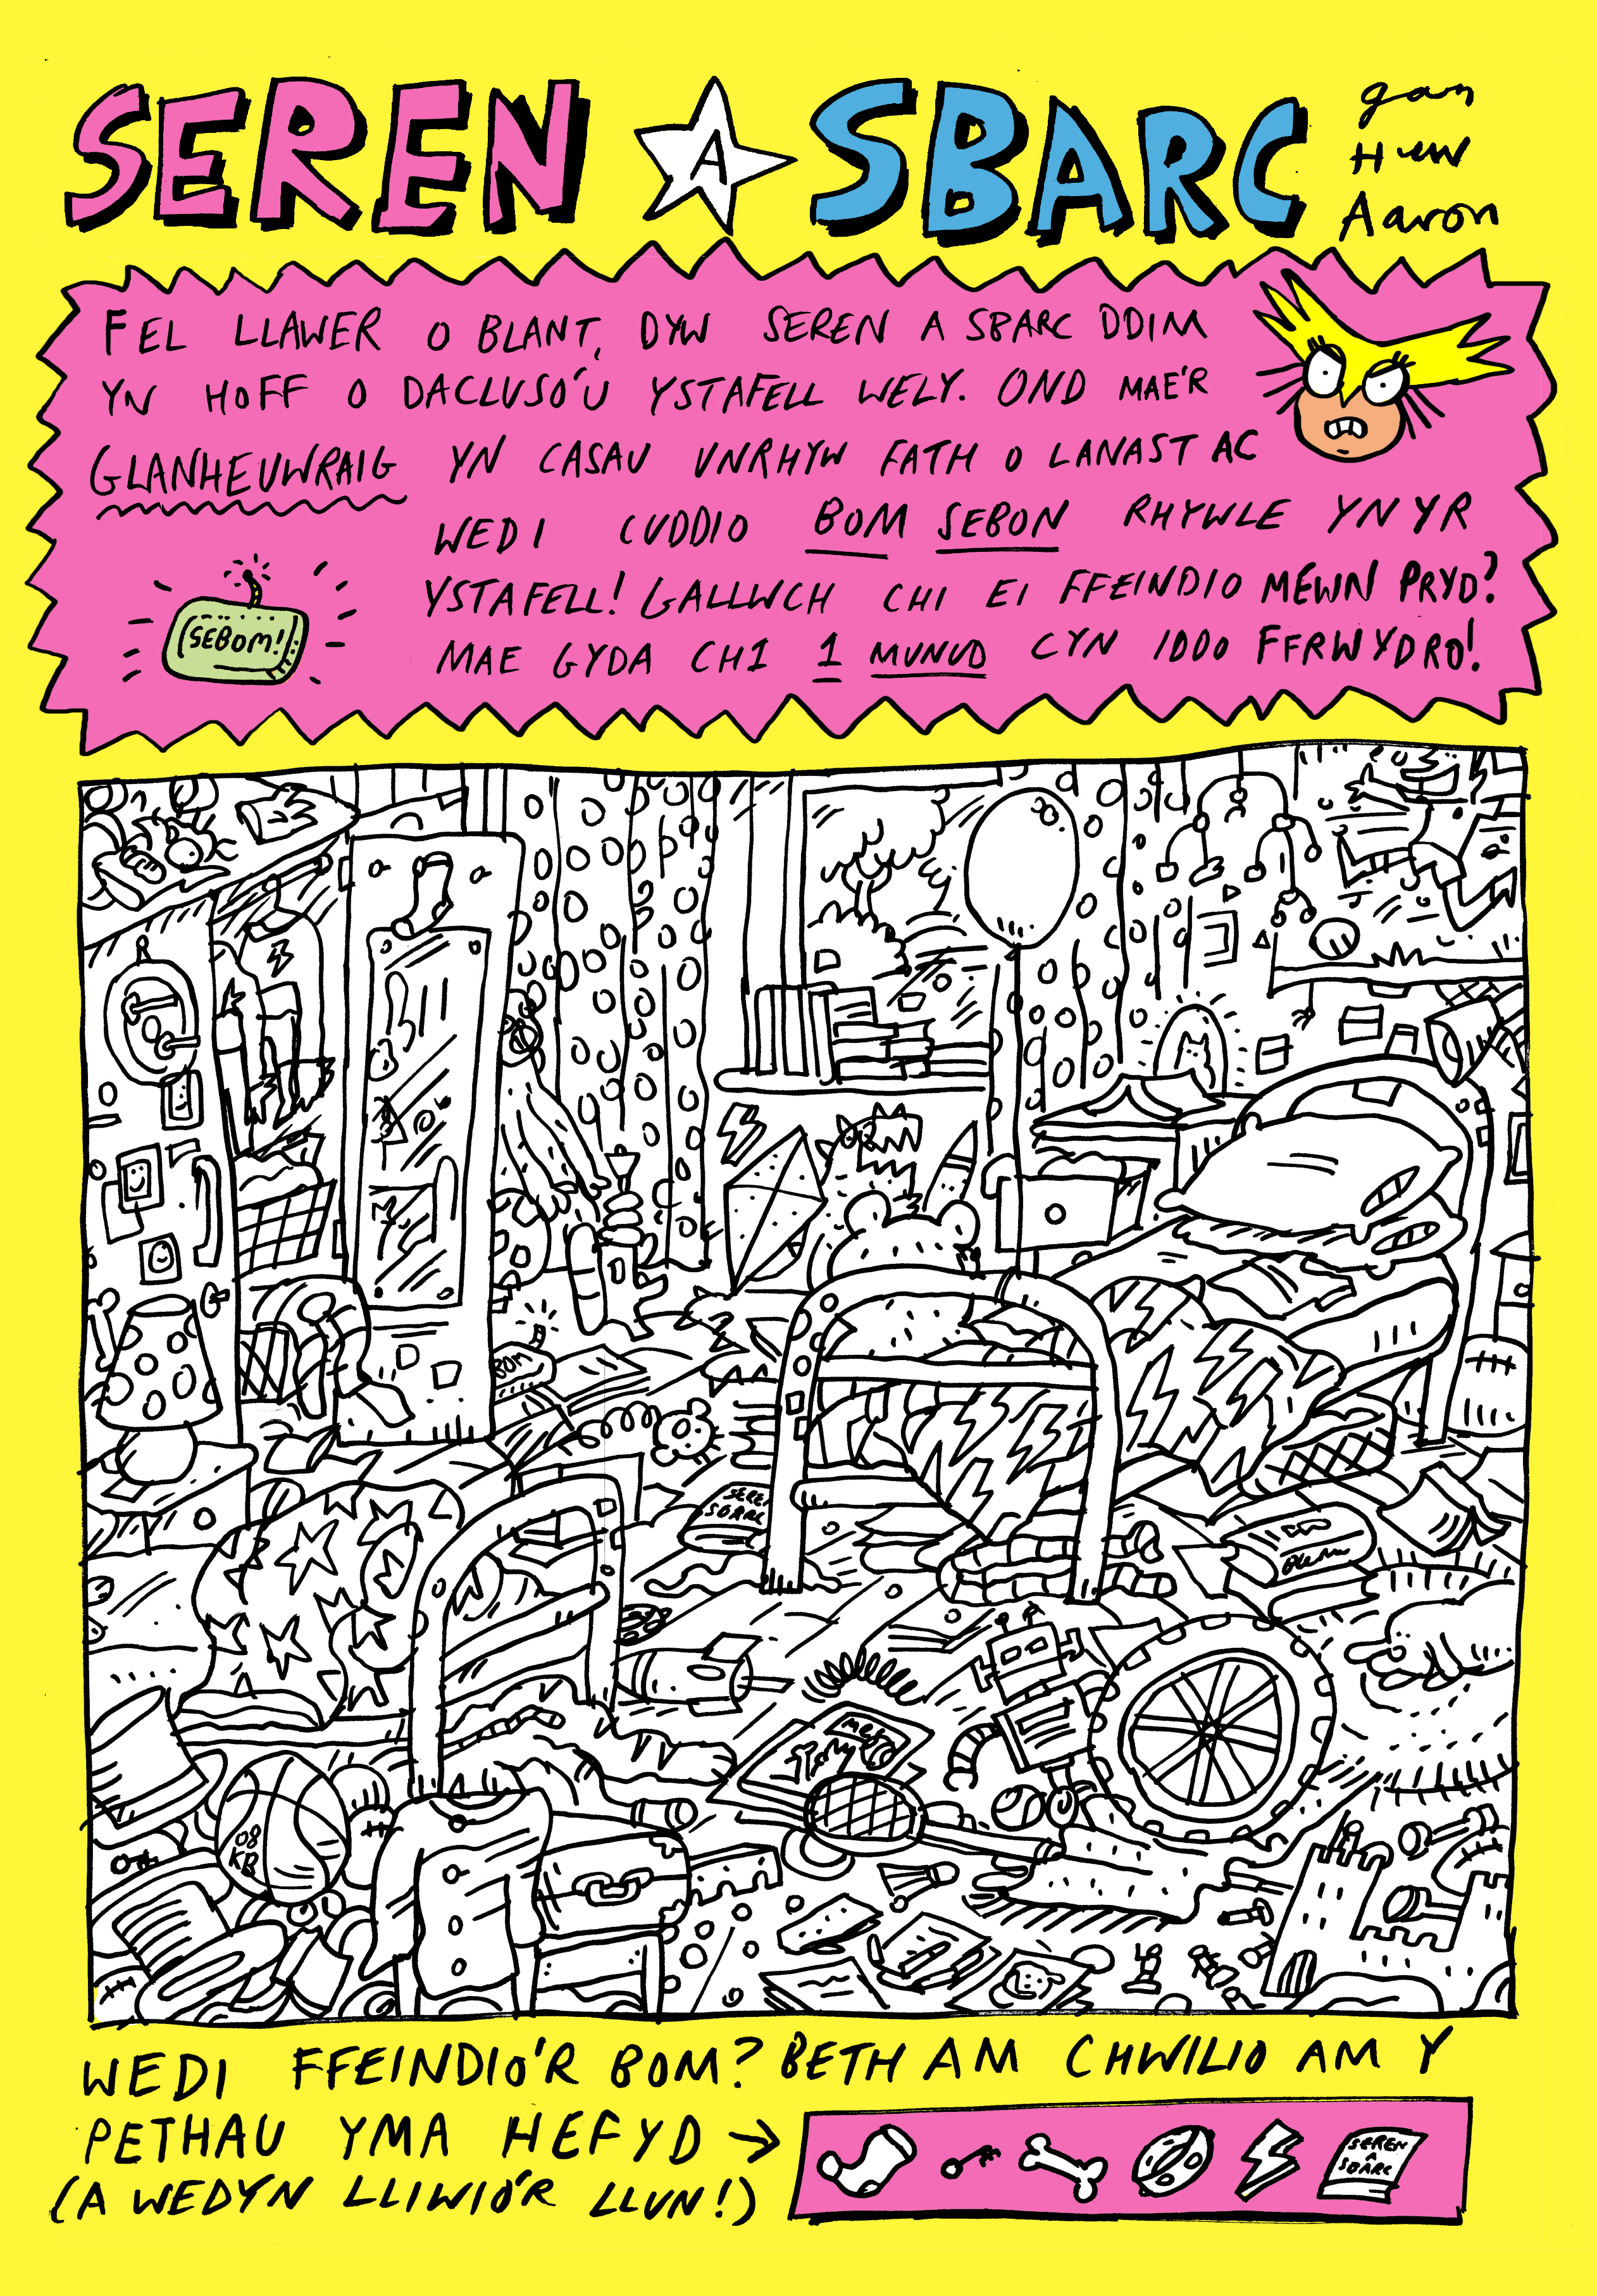 SEREN A SBARC
gan
Huw
Aaron
FEL LLAWER O BLANT, DYW SEREN A SBARC DDIM
YN HOFF O DACLUSO'U YSTAFELL WELY. OND MAE'R
GLANHEUWRAIG YN CASAU UNRHYW FATH O LANAST AC
WEDI CUDDIO BOM SEBON RHYWLE YN YR
YSTAFELL! GALLWCH CHI EI FFEINDIO MEWN PRYD?
MAE GYDA CHI 1 MUNUD CYN IDDO FFRWYDRO!
SEBOM!
R
BOM
SEREN
SBARC
08
KB
WEDI FFEINDIO'R BOM? BETH AM CHWILIO AM Y
PETHAU YMA HEFYD →
(A WEDYN LLIWIO'R LLUN!)
SEREN
A
SBARC